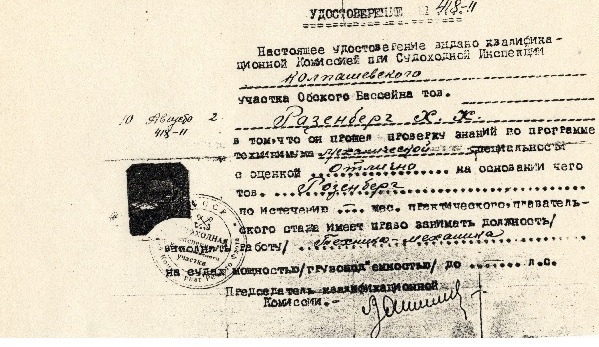 УДОСТОВЕРЕНИЕ 418-11
Настоящее удостоверение выдано квалифика-
ционной Комиссией при Судоходной Инспекции
Колпашевского
участка Обского Бассейна тов.
10 2. Разенберг Х. К.
418-11
в том, что он прошел проверку знаний по программе
техминимума механической специальности
с оценкой Отлично на основании чего
тов. Розенберг
по истечении — мес. практического плаватель-
ского стажа имеет право занимать должность/
выполнять работу/ Технико-механика
на судах мощностью/грузоподъемностью/ до ...... л.с.
Председатель квалификационной
Комиссии.-
СССР
СУДОХОДНАЯ
участка